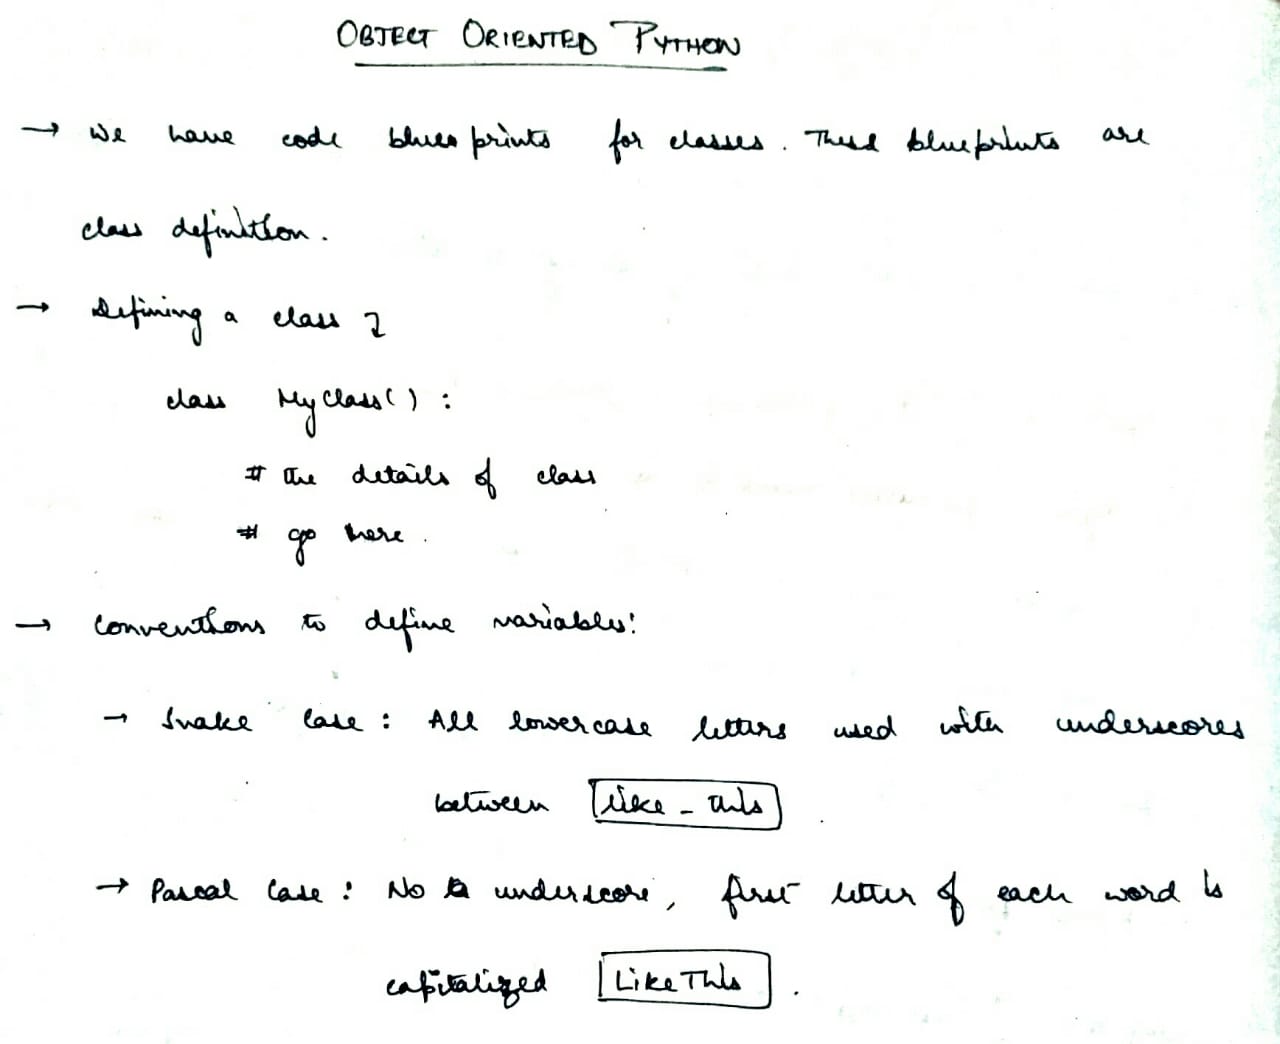 OBJECT ORIENTED PYTHON
→ We have code blueprints for classes. These blueprints are
class definition.
→ Defining a class
class MyClass() :
# the details of class
# go here.
→ Conventions to define variables:
→ Snake Case : All lowercase letters used with underscores
between like_this .
→ Pascal Case : No underscore, first letter of each word is
capitalized LikeThis .